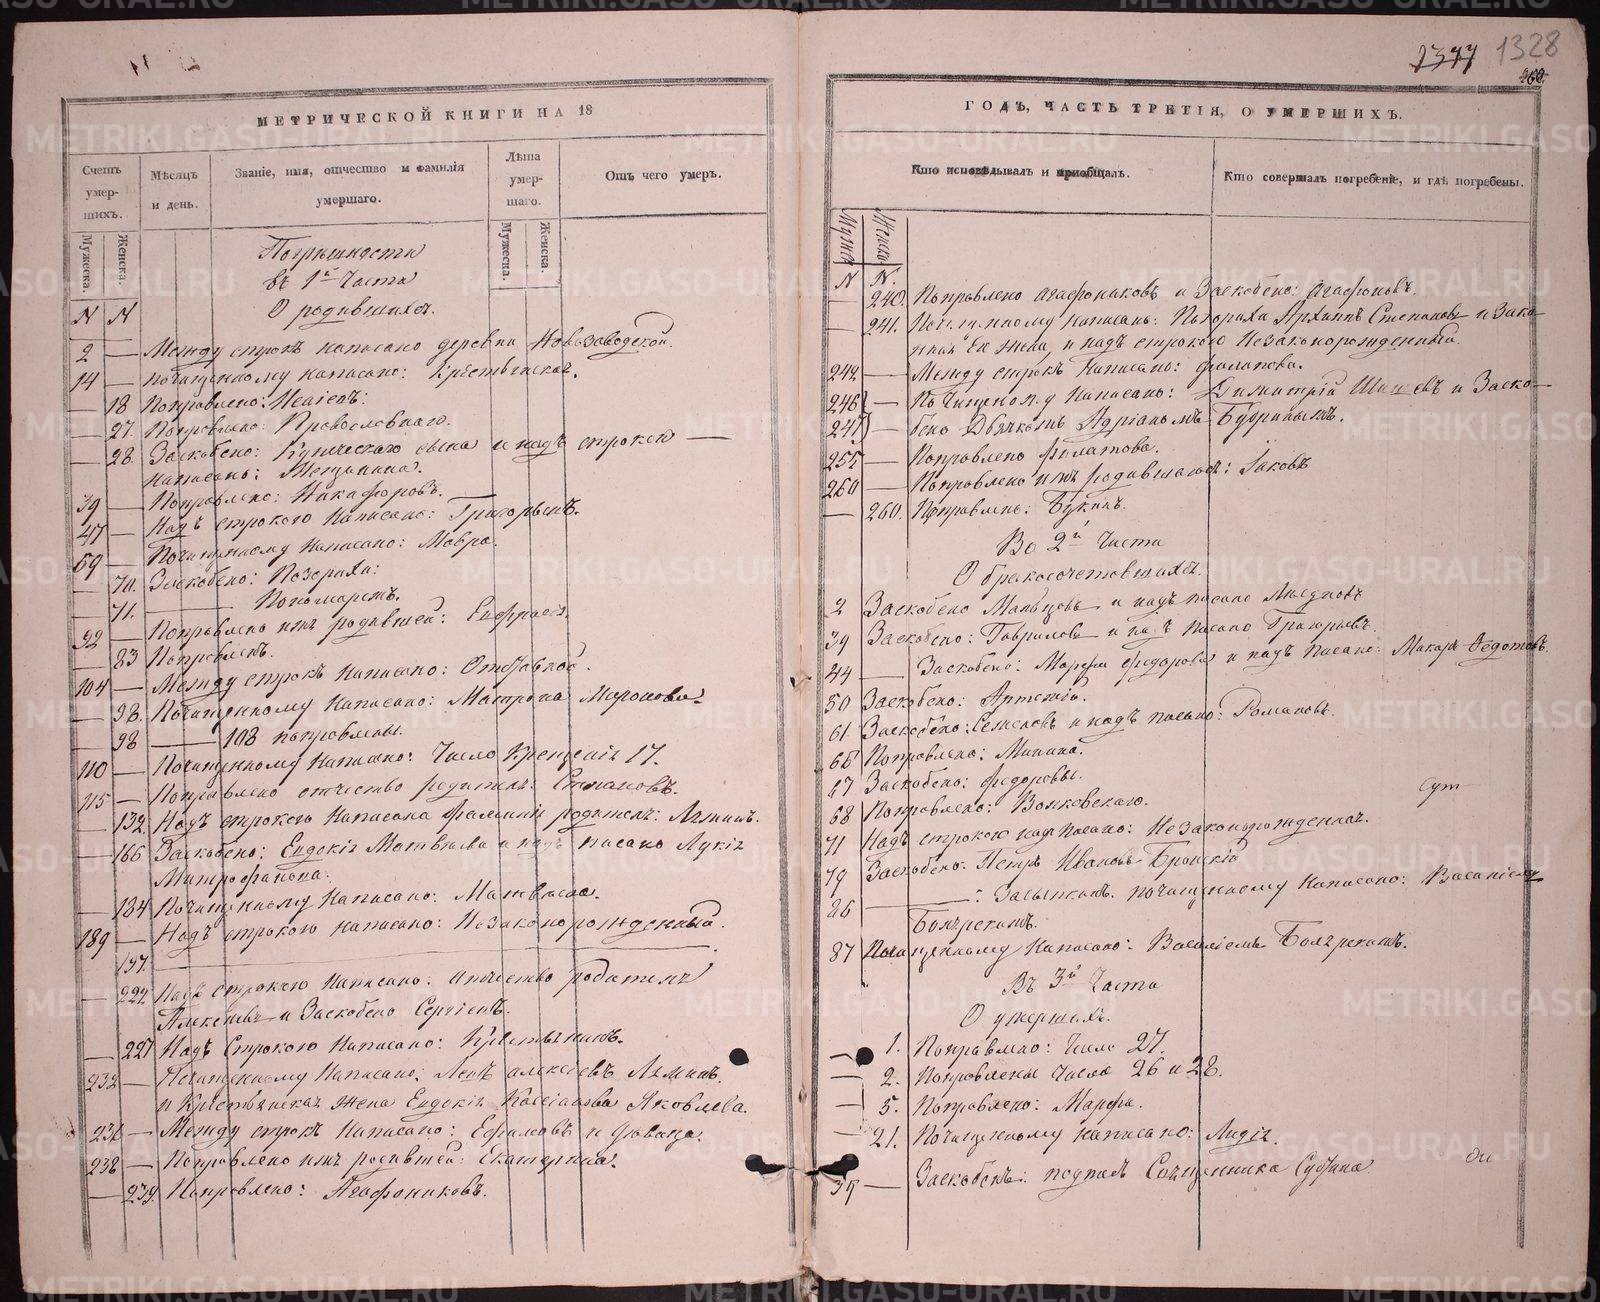 1377 1328
460.
МЕТРИЧЕСКОЙ КНИГИ НА 18
Счетъ умер-шихъ.
Мѣсяцъ и день.
Званіе, имя, отчество и фамилія умершаго.
Лѣта умер-шаго.
Отъ чего умеръ.
Мужеска. Женска.
Мужеска. Женска.
Погрѣшности
въ 1й Части
О родившихся.
N N
2 — Между строкъ написано деревни Новозаводской.
14 — Почищенному написано: Крестьянская.
— 18 Поправлено:
— 27. Поправлено: Православнаго.
— 28. Заскоблено: Купеческаго сына и надъ строкою —
написано: Мещанина.
39 — Поправлено: Никифоровъ.
47 — Надъ строкою написано: Григорьевъ.
59 — Почищенному написано: Мавра.
— 70. Заскоблено: Позориха:
— 71. ——— Пономаремъ.
92 — Поправлено имя родившей: Евфрасія.
— 83 Поправленъ.
104 — Между строкъ написано: Отставной.
— 98. Почищенному написано: Матрона Миронова.
— 98 —— 108 поправлены.
110 — Почищенному написано: Число Крещенія 17.
115 — Поправлено отчество родителя: Степановъ.
— 132. Надъ строкою написана фамилія родителя:
— 166 Заскоблено: Евдокія Матвѣева и надъ писано Лукія
Митрофанова.
— 184 Почищенному написано: Матвѣева.
189 — Надъ строкою написано: Незаконорожденный.
— 197. ———
— 222. Надъ строкою написано: отчество родителя
Алексѣевъ и Заскоблено Сергѣевъ.
— 227 Надъ Строкою написано: Крестьянинъ.
232 — Почищенному написано: Левъ Алексѣевъ
и Крестьянская жена Евдокія Кассіанова Яковлева.
236 — Между строкъ написано: Ефимовъ и
238 — Поправлено имя родившей: Екатерина.
— 239. Поправлено: Агафониковъ.
ГОДЪ, ЧАСТЬ ТРЕТІЯ, О УМЕРШИХЪ.
Кто исповѣдывалъ и пріобщалъ.
Кто совершалъ погребеніе, и гдѣ погребены.
Мужеска Женска
N N.
— 240. Поправлено Агафониковъ и Заскоблено: Агафоновъ.
— 241. Почищенному написано: Позориха Архиппъ Степановъ и Зако-
нная Ея жена, и надъ строкою Незаконорожденный.
242 — Между строкъ написано: Филатова.
246 — Почищенному написано: Димитрій и Заско-
247 — блено Дьячкомъ Адріаномъ Будринымъ.
255 — Поправлено Филатова.
260 — Поправлено имя родившагося: Іаковъ
— 260. Поправлено: Букинъ.
Во 2й Части
О бракосочетавшихся.
2 Заскоблено Мальцовъ и надъ писано
39 Заскоблено: Гавриловъ и надъ писано Григорьевъ.
44 — Заскоблено: Марѳы Федоровы и надъ писано: Макаръ Федотовъ.
50 Заскоблено: Артемія.
61 Заскоблено: Семеновъ и надъ писано: Романовъ.
66 Поправлено: Минина.
67 Заскоблено: Федоровы.
68 Поправлено: Волковскаго.
71 Надъ строкою надписано: Незаконорожденная.
Сут
79 Заскоблено: Петръ Ивановъ Бронскій
86 ———: Засыпкинъ. почищенному написано: Василіемъ
Болярскимъ.
87 Почищенному написано: Василіемъ Болярскимъ.
Въ 3й Части
О умершихъ.
— 1. Поправлено: Число 27.
— 2. Поправлены Числа 26 и 28.
— 5. Поправлено: Марѳа.
— 21. Почищенному написано: Лидія.
39 — Заскобленъ: подписъ Священника